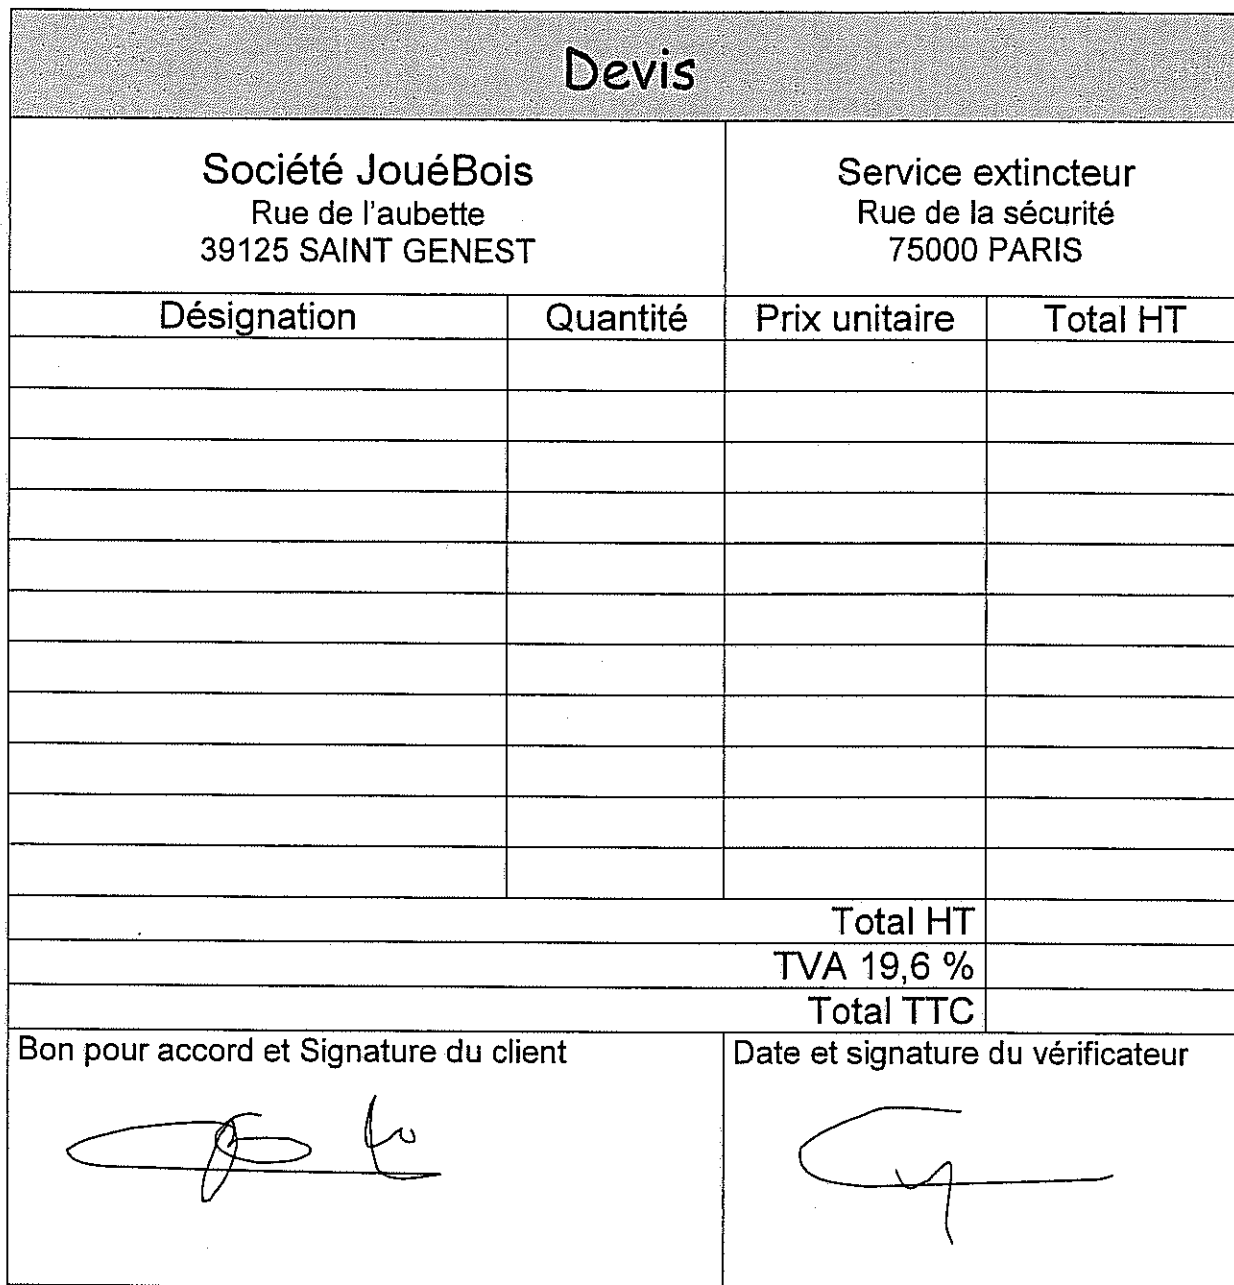 Devis
Société JouéBois
Rue de l'aubette
39125 SAINT GENEST
Service extincteur
Rue de la sécurité
75000 PARIS
Désignation Quantité Prix unitaire Total HT
Total HT
TVA 19,6 %
Total TTC
Bon pour accord et Signature du client
Date et signature du vérificateur